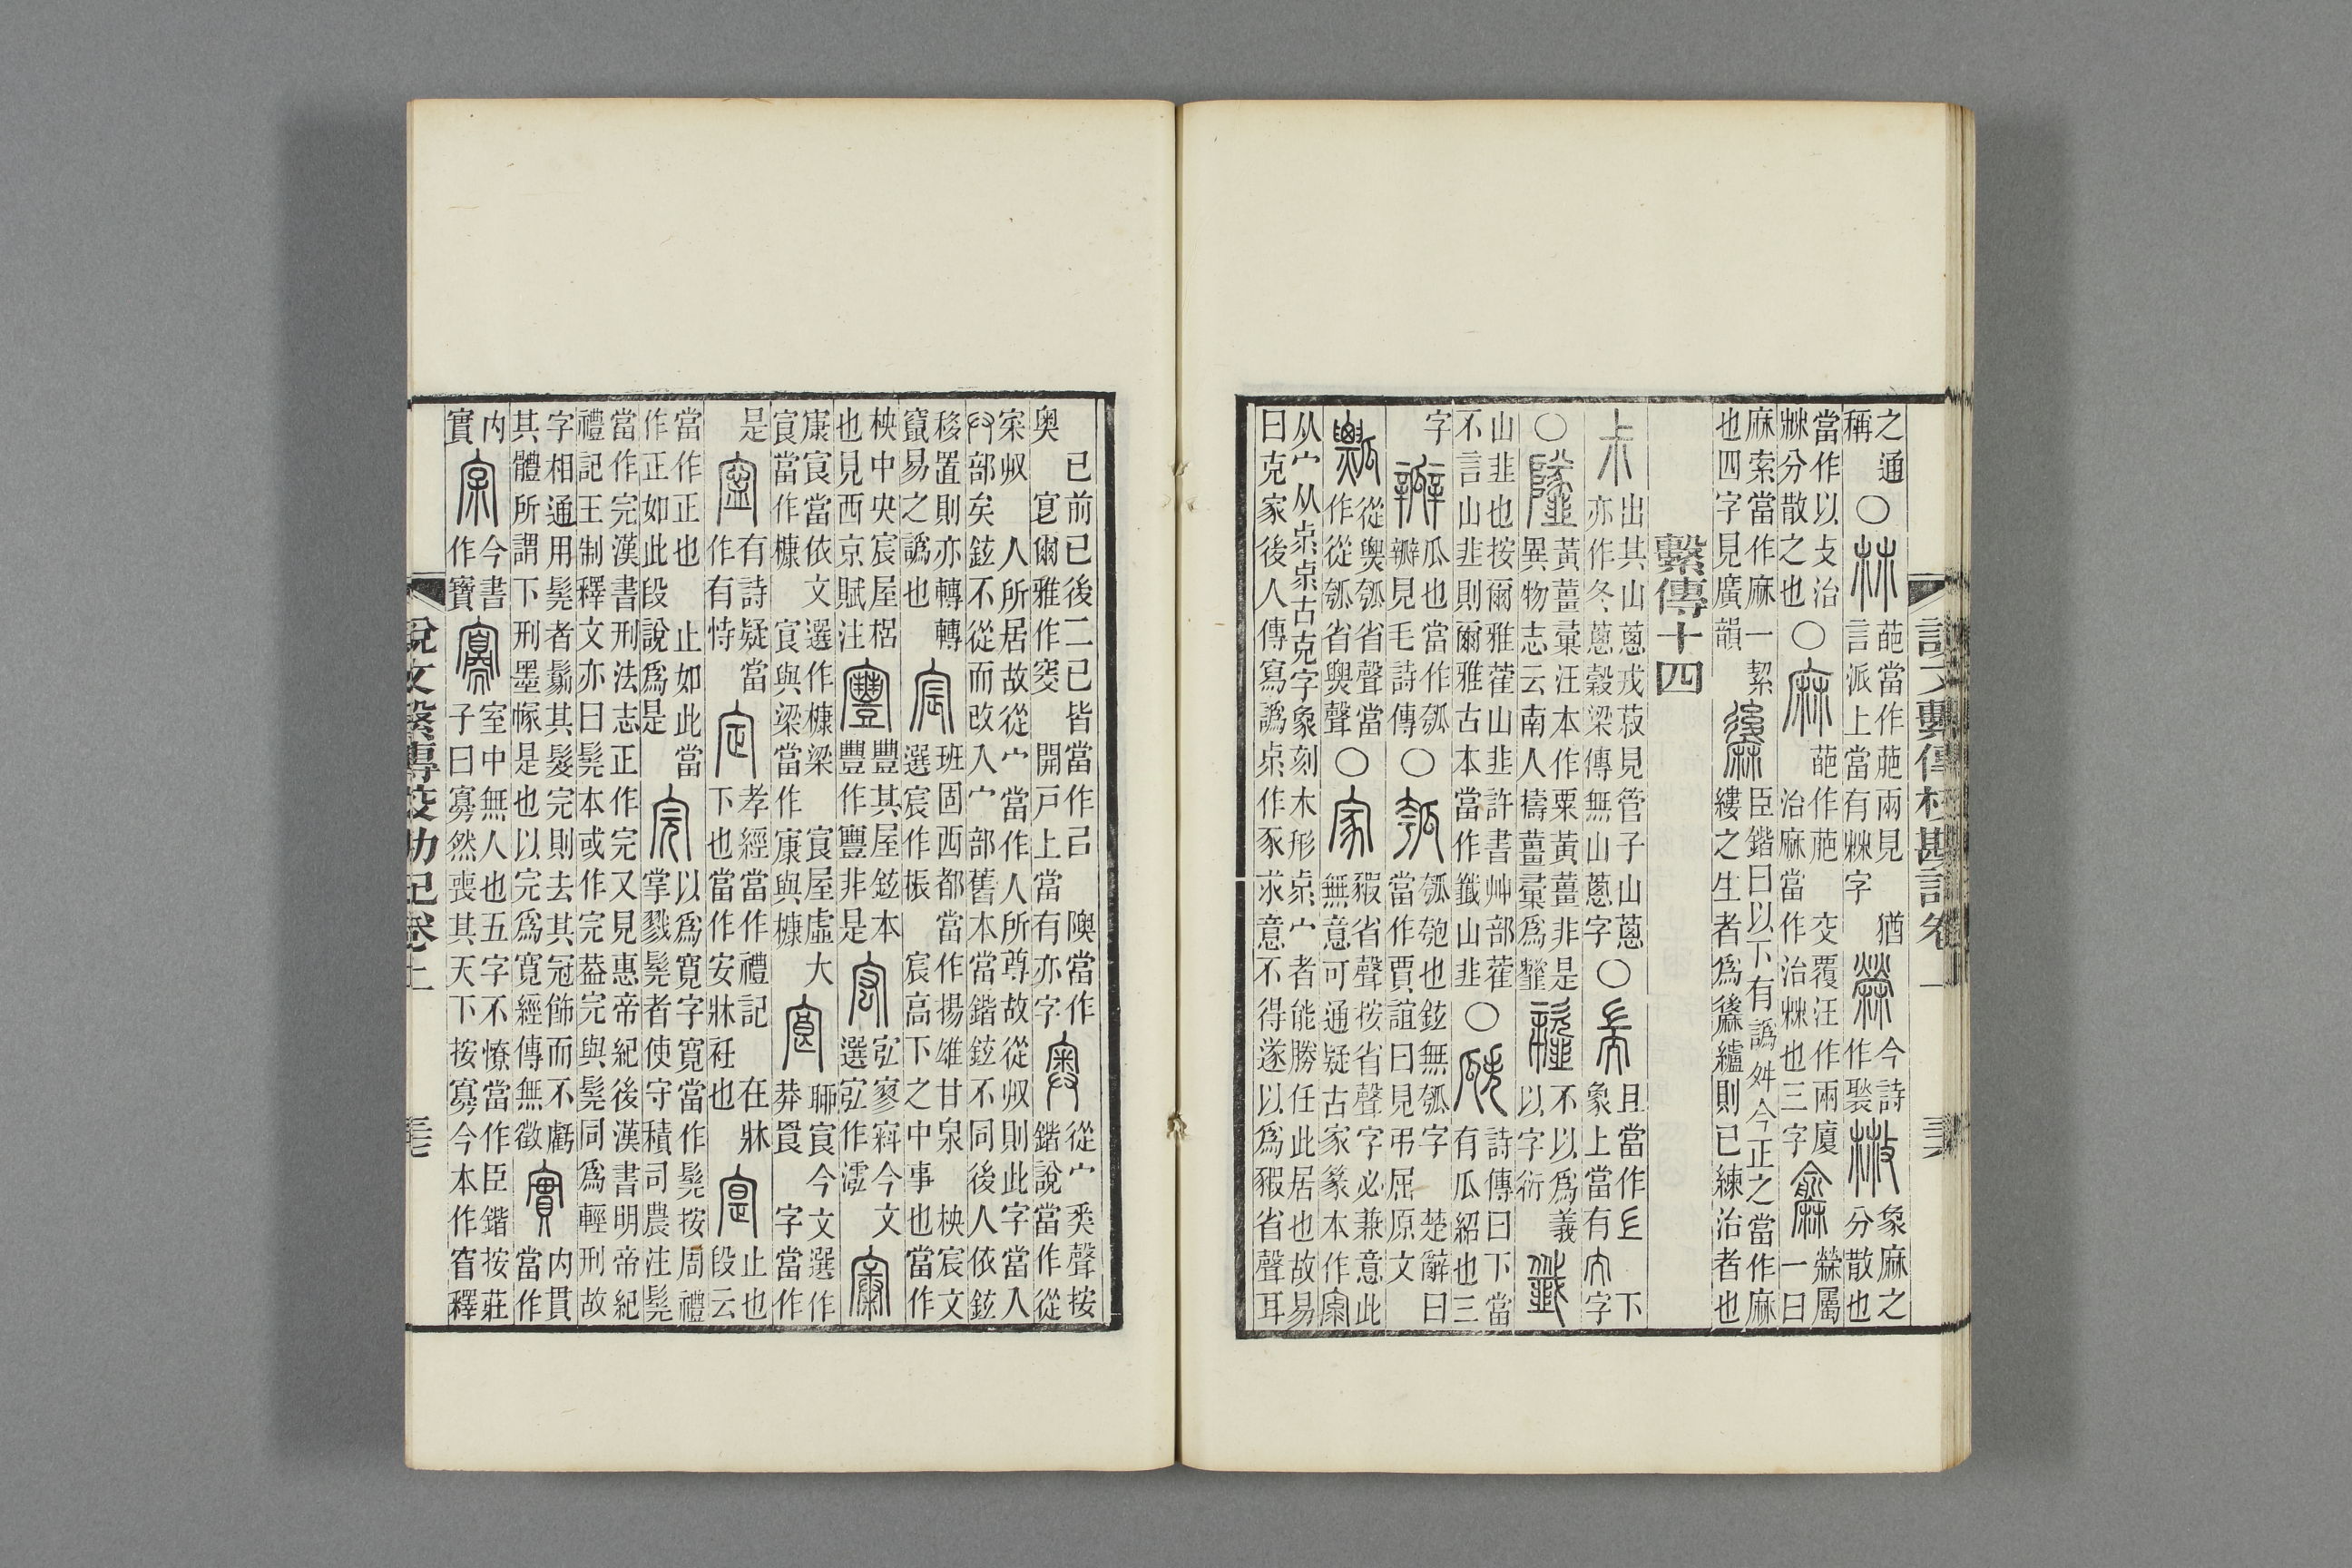 之通
稱
○𣏟
萉當作萉兩見 猶
言派上當有𣗥字
檾
今詩
作褧
㪔
象麻之
分散也
當作以攴治
𣗥分散之也
○麻
葩作萉 覆汪作兩廈
治麻當作治𣗥也三字
檾屬
一曰
麻索當作麻一絜
也四字見廣韻
臣鍇曰以下有譌舛今正之當作麻
縷之生者爲纑則已練治者也
繫傳十四
尗
出其山蔥戎菽見管子山蔥
亦作冬蔥穀梁傳無山蔥字
○
且當作 下
象上當有 字
○
黃薑彚汪本作粟黃薑非是
異物志云南人擣薑彚爲韲
不以爲義
以字衍
韱
山韭也按爾雅藿山韭許書艸部藿
不言山韭則爾雅古本當作韱山韭
○㼐
詩傳曰下當
有瓜紹也三
字
瓣
瓜也當作瓠
瓣見毛詩傳
○瓠
瓠匏也鉉無瓠字 楚辭曰
當作賈誼曰見弔屈原文
從瓠省聲當
作從瓠省聲
○家
豭省聲按省聲字必兼意此
無意可通疑古家篆本作
从宀从古克字象刻木形宀者能勝任此居也故易
曰克家後人傳寫譌作豕求意不得遂以爲豭省聲耳
說文繫傳校勘記卷上 三六
已前已後二已皆當作己 隩當作
奥 爾雅作窔 開戸上當有亦字
奧
從宀釆聲按
鍇說當作從
人所居故從宀當作人所尊故從𠬞則此字當入
𠬞部矣鉉不從而改入宀部舊本當鍇鉉不同後人依鉉
移置則亦轉轉
竄易之譌也
宸
班固西都當作揚雄甘泉 柍宸文
選宸作桭 宸高下之中事也當作
柍中央宸屋梠
也見西京賦注
寷
豐其屋鉉本
豐作寷非是
宏
宖寥今文
選宖作
康
㝩㝗當依文選作槺梁 㝗屋虛大
㝗當作槺 㝗與梁當作㝩與槺
㝗
㝗今文選作
莽 字當作
是
寍
有詩疑當
作有恃
定
孝經當作禮記 在牀
下也當作安牀衽也
寔
止也
段云
當作正也 止如此當
作正如此段說爲是
完
以爲寬字寬當作髡按周禮
掌戮髡者使守積司農注髡
當作完漢書刑法志正作完又見惠帝紀後漢書明帝紀
禮記王制釋文亦曰髡本或作完葢完與髡同爲輕刑故
字相通用髡者鬍其髮完則去其冠飾而不虧
其體所謂下刑墨幏是也以完爲寬經傳無徵
實
内貫
當作
内
實
宲
今書
作寶
室中無人也五字不憭當作臣鍇按莊
子曰寡然喪其天下按寡今本作窅釋
說文繫傳校勘記卷上 三七